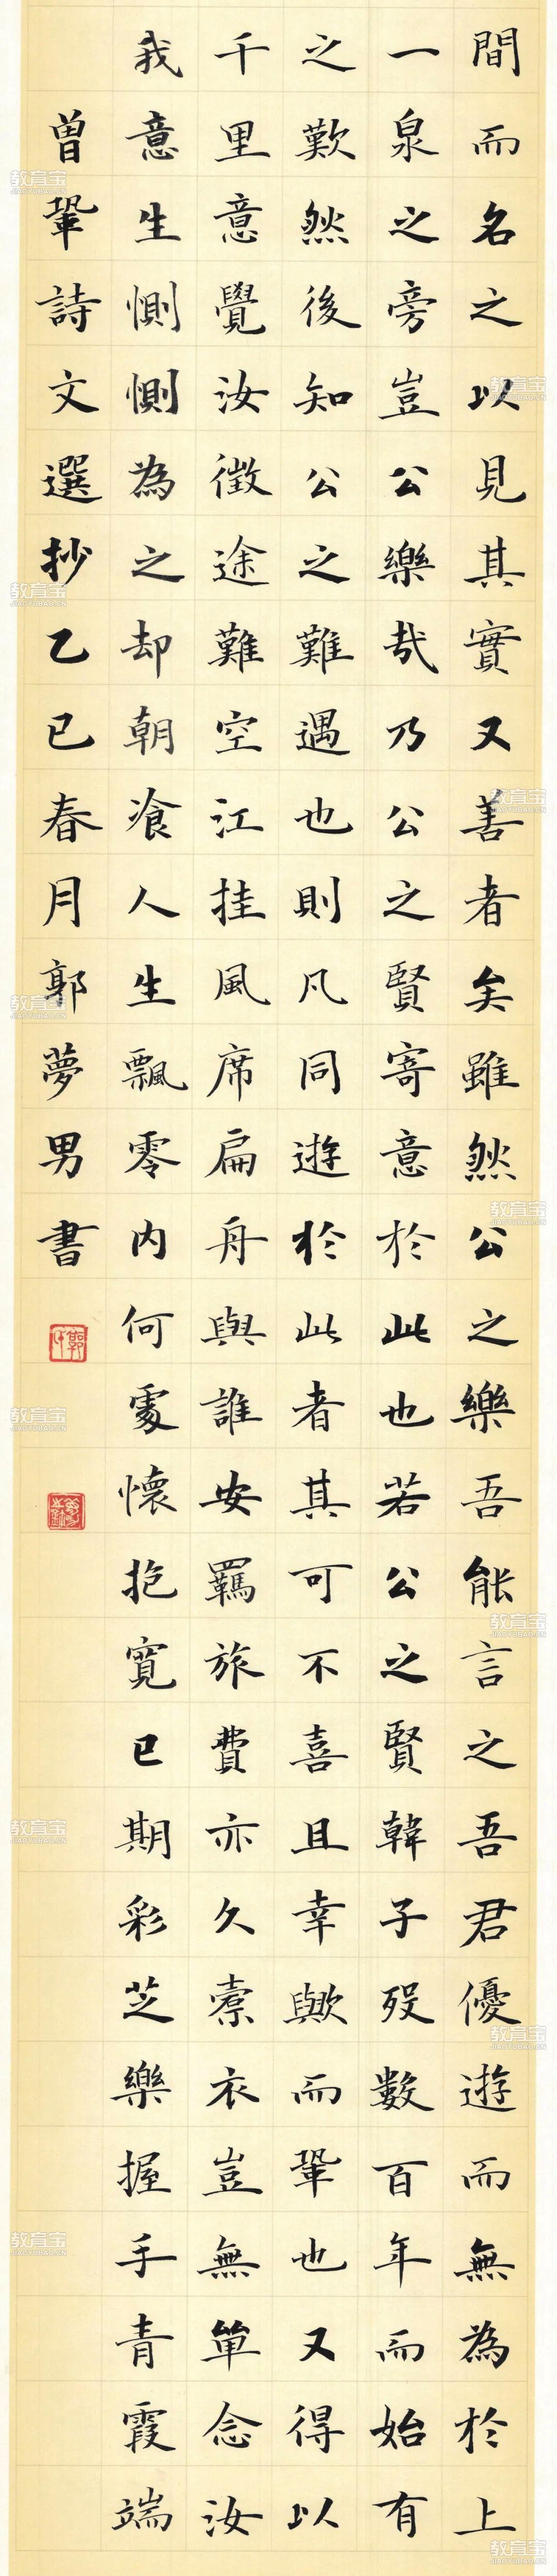 間而名之以見其實又善者矣雖然公之樂吾能言之吾君優遊而無為於上
一泉之旁豈公樂哉乃公之賢寄意於此也若公之賢韓子歿數百年而始有
之歎然後知公之難遇也則凡同遊於此者其可不喜且幸歟而鞏也又得以
千里意覺汝徵途難空江挂風席扁舟與誰安羈旅費亦久橐衣豈無單念汝
我意生惻惻為之却朝飡人生飄零內何處懷抱寬已期彩芝樂握手青霞端
曾鞏詩文選抄乙巳春月郭夢男書
教育宝
JIAOYUBAO.CN